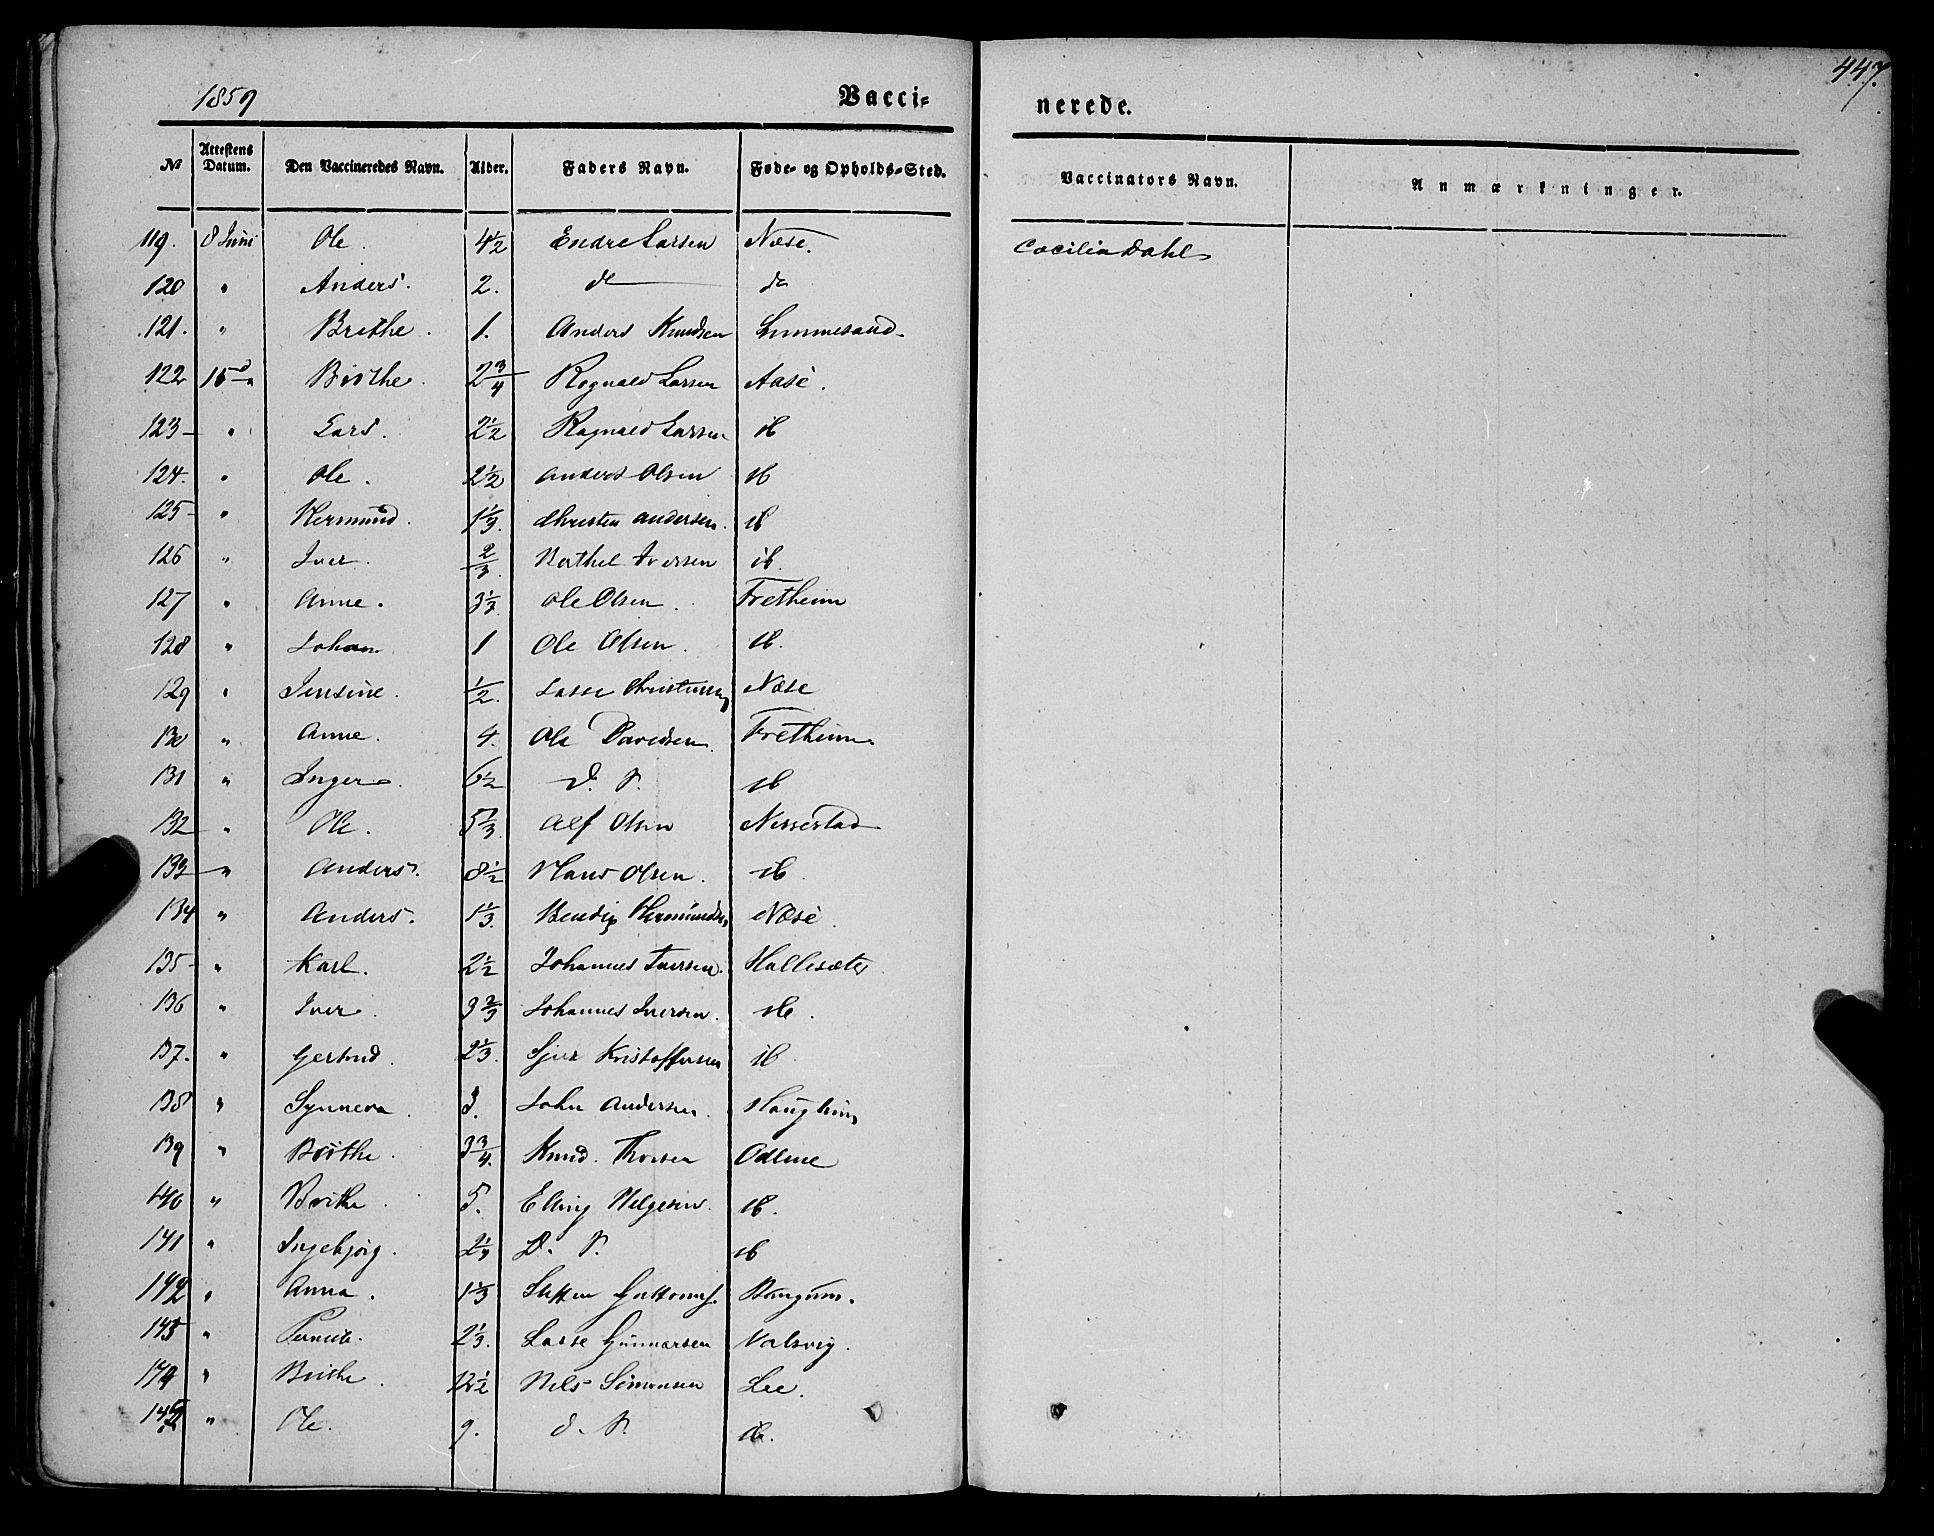 1859 Vacci- nerede. 447.
No Attestens Datum. Den Vaccineredes Navn. Alder. Faders Navn. Føde- og Opholds-Sted. Vaccinators Navn. Anmærkninger.
119. 8 Juni Ole. 4 1/2 Endre Larsen Næse. Cæcilia Dahl
120 " Anders. 2. do do
121. " Brithe. 1. Anders Knudsen
122 15 " Brithe. 2 3/4 Rognald Larsen Aase.
123 " Lars. 2 1/2 Ragnald Larsen ib
124. " Ole. 2 1/2 Anders Olsen ib
125 " Hermund. 1 1/3. Christen Andersen. ib
126 " Iver. 2/3. Berthel Iversen ib.
127 " Anne. 3 1/3. Ole Olsen. Fretheim
128 " Johan 1 Ole Olsen. ib.
129 " Jensine. 1/2. Lasse Næse
130 " Anne. 4. Ole Davidsen. Fretheim
131 " Inger. 6 1/2 D. S. ib
132 " Ole. Alf Olsen Nessestad
133 " Anders. 8 1/2 Hans Olsen. ib.
134 " Anders. 1 1/3. Bendix Hermunds. Næse.
135 " Karl. 2 1/2 Johannes Iversen. Hallesæter
136 " Iver. 3 2/3 Johannes Iversen. ib.
137. " Gertrud. 2 1/3. Sjur Kristoffersen ib
138 " Synneva. 3. John Andersen.
139 " Brithe. 3 3/4. Knud. Thorsen
140 " Brithe. 5. Elling Helgesen. ib.
141 " Ingebjørg. D. S. ib
142 " Anna. 1 1/3 Steffen Guttorms.
143 " Pernile. 2 1/3. Lasse Gunnarsen Valsvig.
144 " Brithe. 12 1/2 Nils Simonsen Lee.
145 " Ole. 9. d. S. ib.